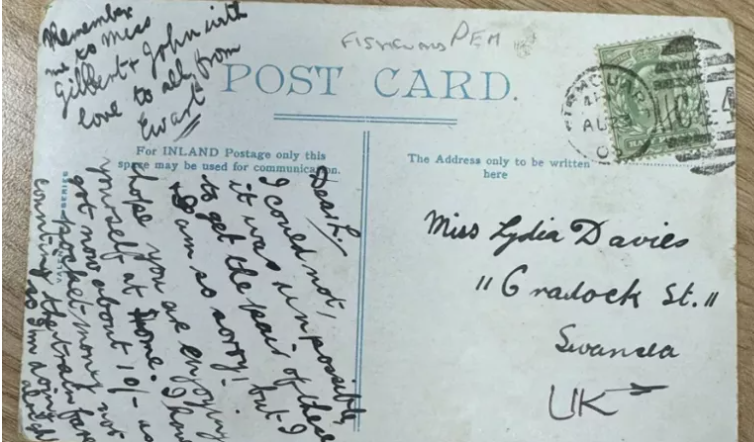 Remember
me to Miss
Gilbert & John with
love to all from
Ewart
FISHGUARD PEM
POST CARD.
For INLAND Postage only this
space may be used for communication.
The Address only to be written
here
Dear L.
I could not,
it was impossible,
to get the pair of these
I am so sorry! but I
hope you are enjoying
yourself at home. I have
got now about 10/- as
pocket money not
counting the train fare
so I'm doing
alright
SERIES
Miss Lydia Davies
"6 Cradock St."
Swansea
UK
AU